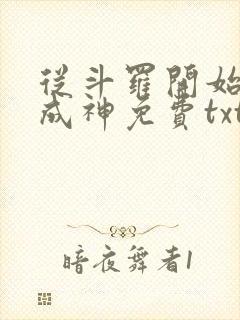 從斗羅開始
成神免費txt
暗夜舞者1